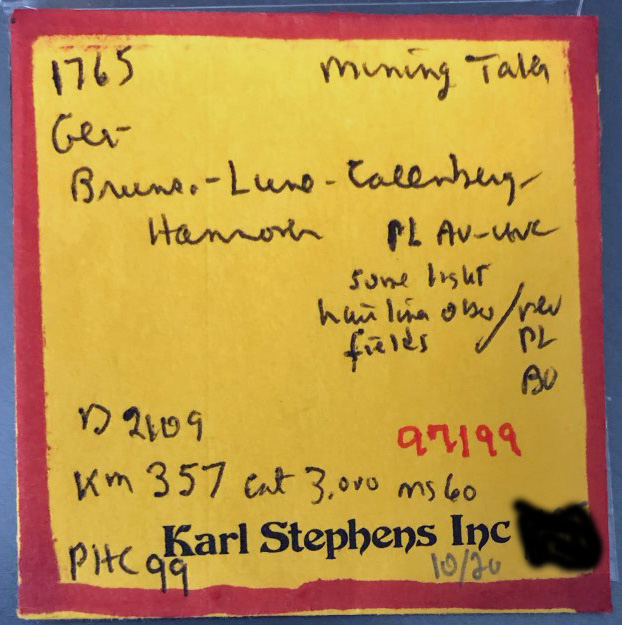 1765 Mining Taler
Ger
Bruns.-Lune-Calenberg-
Hannover PL AU-UNC
some light
hairline obv/rev
fields PL
BU
D 2109
97199
Km 357 Cat 3,000 ms60
Karl Stephens Inc
PHC 99 10/20